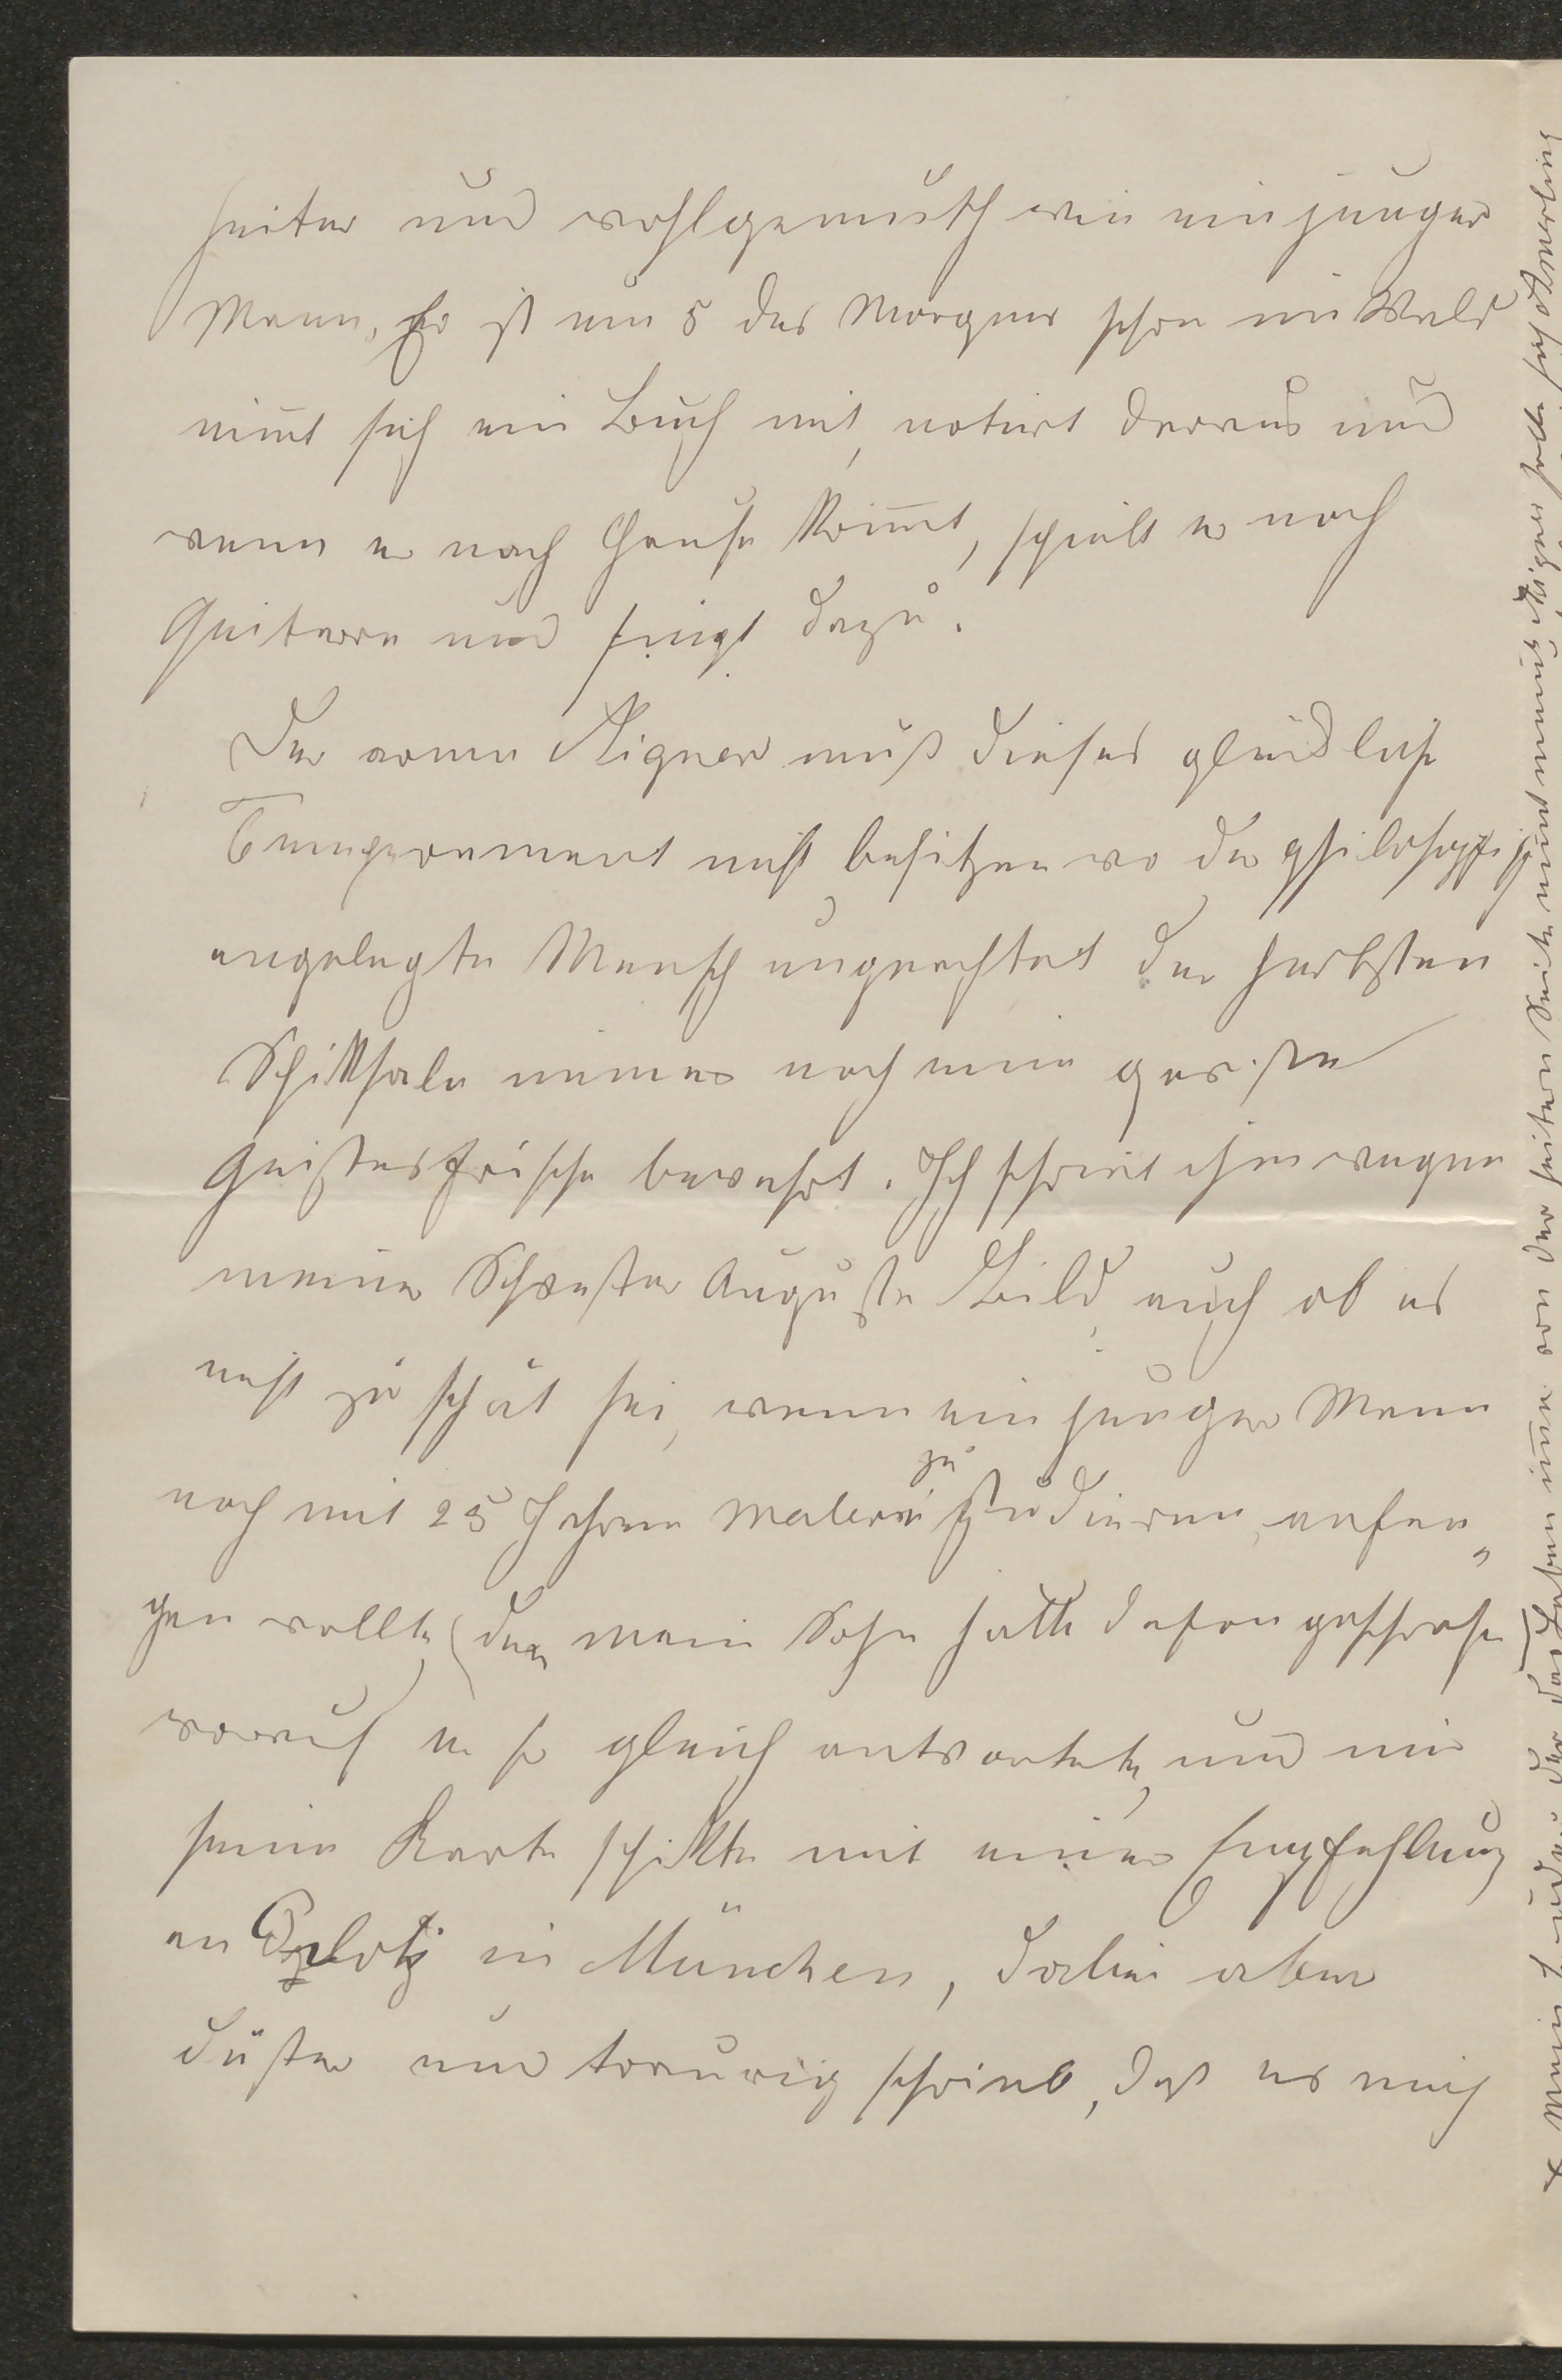 heiter und wohlgemuth wie ein junger
Mann, Er ist um 5 des Morgens schon im Wald
nim̅t sich ein Buch mit, notirt daraus und
wenn er nach Hause kom̅t, spielt er noch
Guitarre und singt dazu.
Der arme Aigner muß dieses glückliche
Temperament nicht besitzen wo der philosophisch
angelegte Mensch ungeachtet der herbsten
Schikksale immer noch eine gewisse
Geistesfrische bewahrt. Ich schrieb ihm wegen
meiner Schwester Auguste Bild, auch ob es
nicht zu spät sei, wenn ein junger Mann
noch mit 25 Jahren Malerei zu studieren anfan„
gen wollte, (denn mein Sohn hatte davon gesprochen)
worauf er so gleich antwortete, und mir
seine Karte schikkte mit einer Empfehlung
an Pilotj in München, dabei aber
düster und traurig schrieb, daß es mich
x Mein der das Leben im̅er von der heitern Seite nim̅t meinte Aigner solle sich